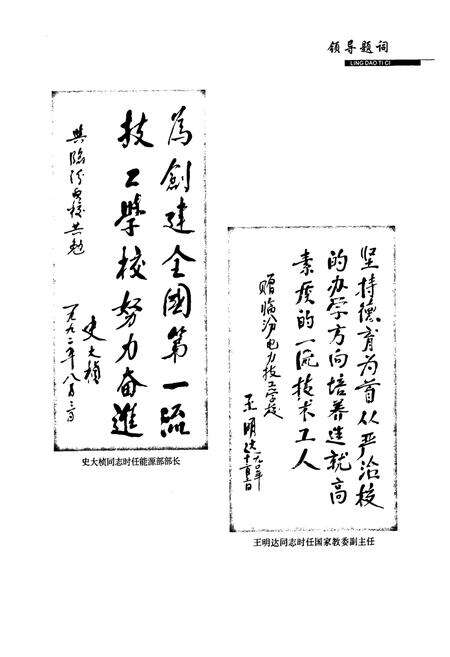 领导题词
LING DAO TI CI
為創建全國第一流
技工學校努力奮進
與臨汾電校共勉
史大楨
一九九二年八月三日
史大桢同志时任能源部部长
坚持德育为首从严治校
的办学方向培养造就高
素质的一流技术工人
赠临汾电力技工学校
王明达
王明达同志时任国家教委副主任